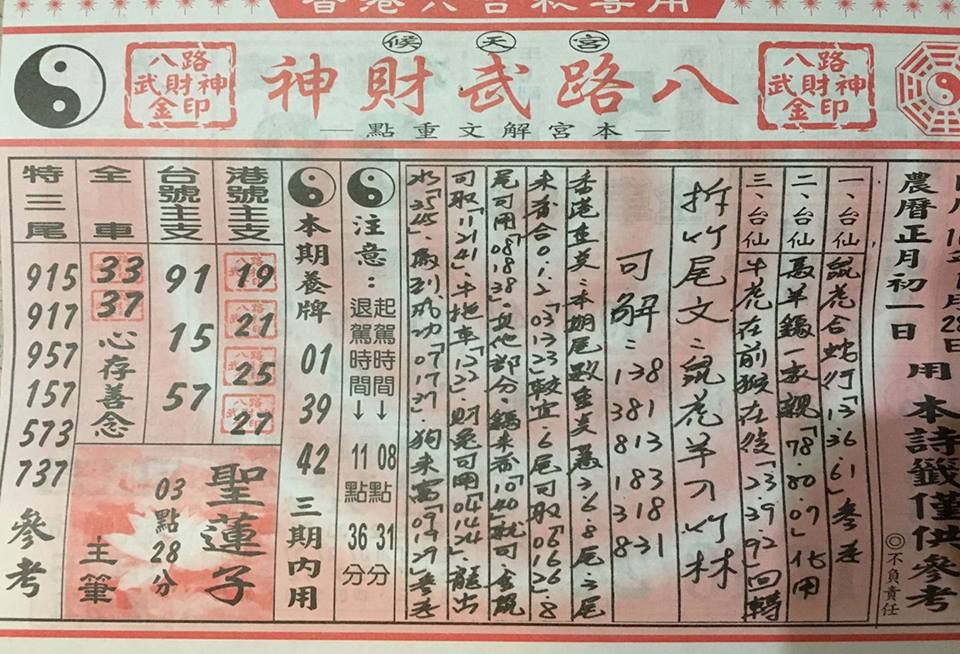 香港六合彩專用
候天宮
八路武財神
八路財神武金印
八路財神武金印
本宮解文重點
28日
農曆正月初一日
用本詩籤僅供參考
◎不負責任
一、台仙 鼠虎合蛇行「13.36.61」參考
二、台仙 馬羊鷄一家親「78.80.09」化用
三、台仙 牛虎在前猴在後「23.39.92」回轉
拆竹尾文：鼠虎羊刀竹林
可解：138 381 813 183 318 831
香港查美：本期尾數重美愚3.6.8尾
尾可用「08.18.38」
可取「11.21.41」牛拖車「12.22」財兔可用「04.14.24」龍出
水「35.45」馬到成功「07.17.37」狗來富「09.19.29」參考
注意：
起駕時間↓08點31分
退駕時間↓11點36分
本期養牌 01 39 42 三期內用
港號主支
19
21
25
27
台號主支
91
15
57
全車
33
37
心存善念
特三尾
915
917
957
157
573
737
參考
聖蓮子
03點28分
主筆